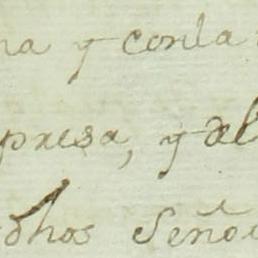 na y conla
presa, y al
dhos Seño